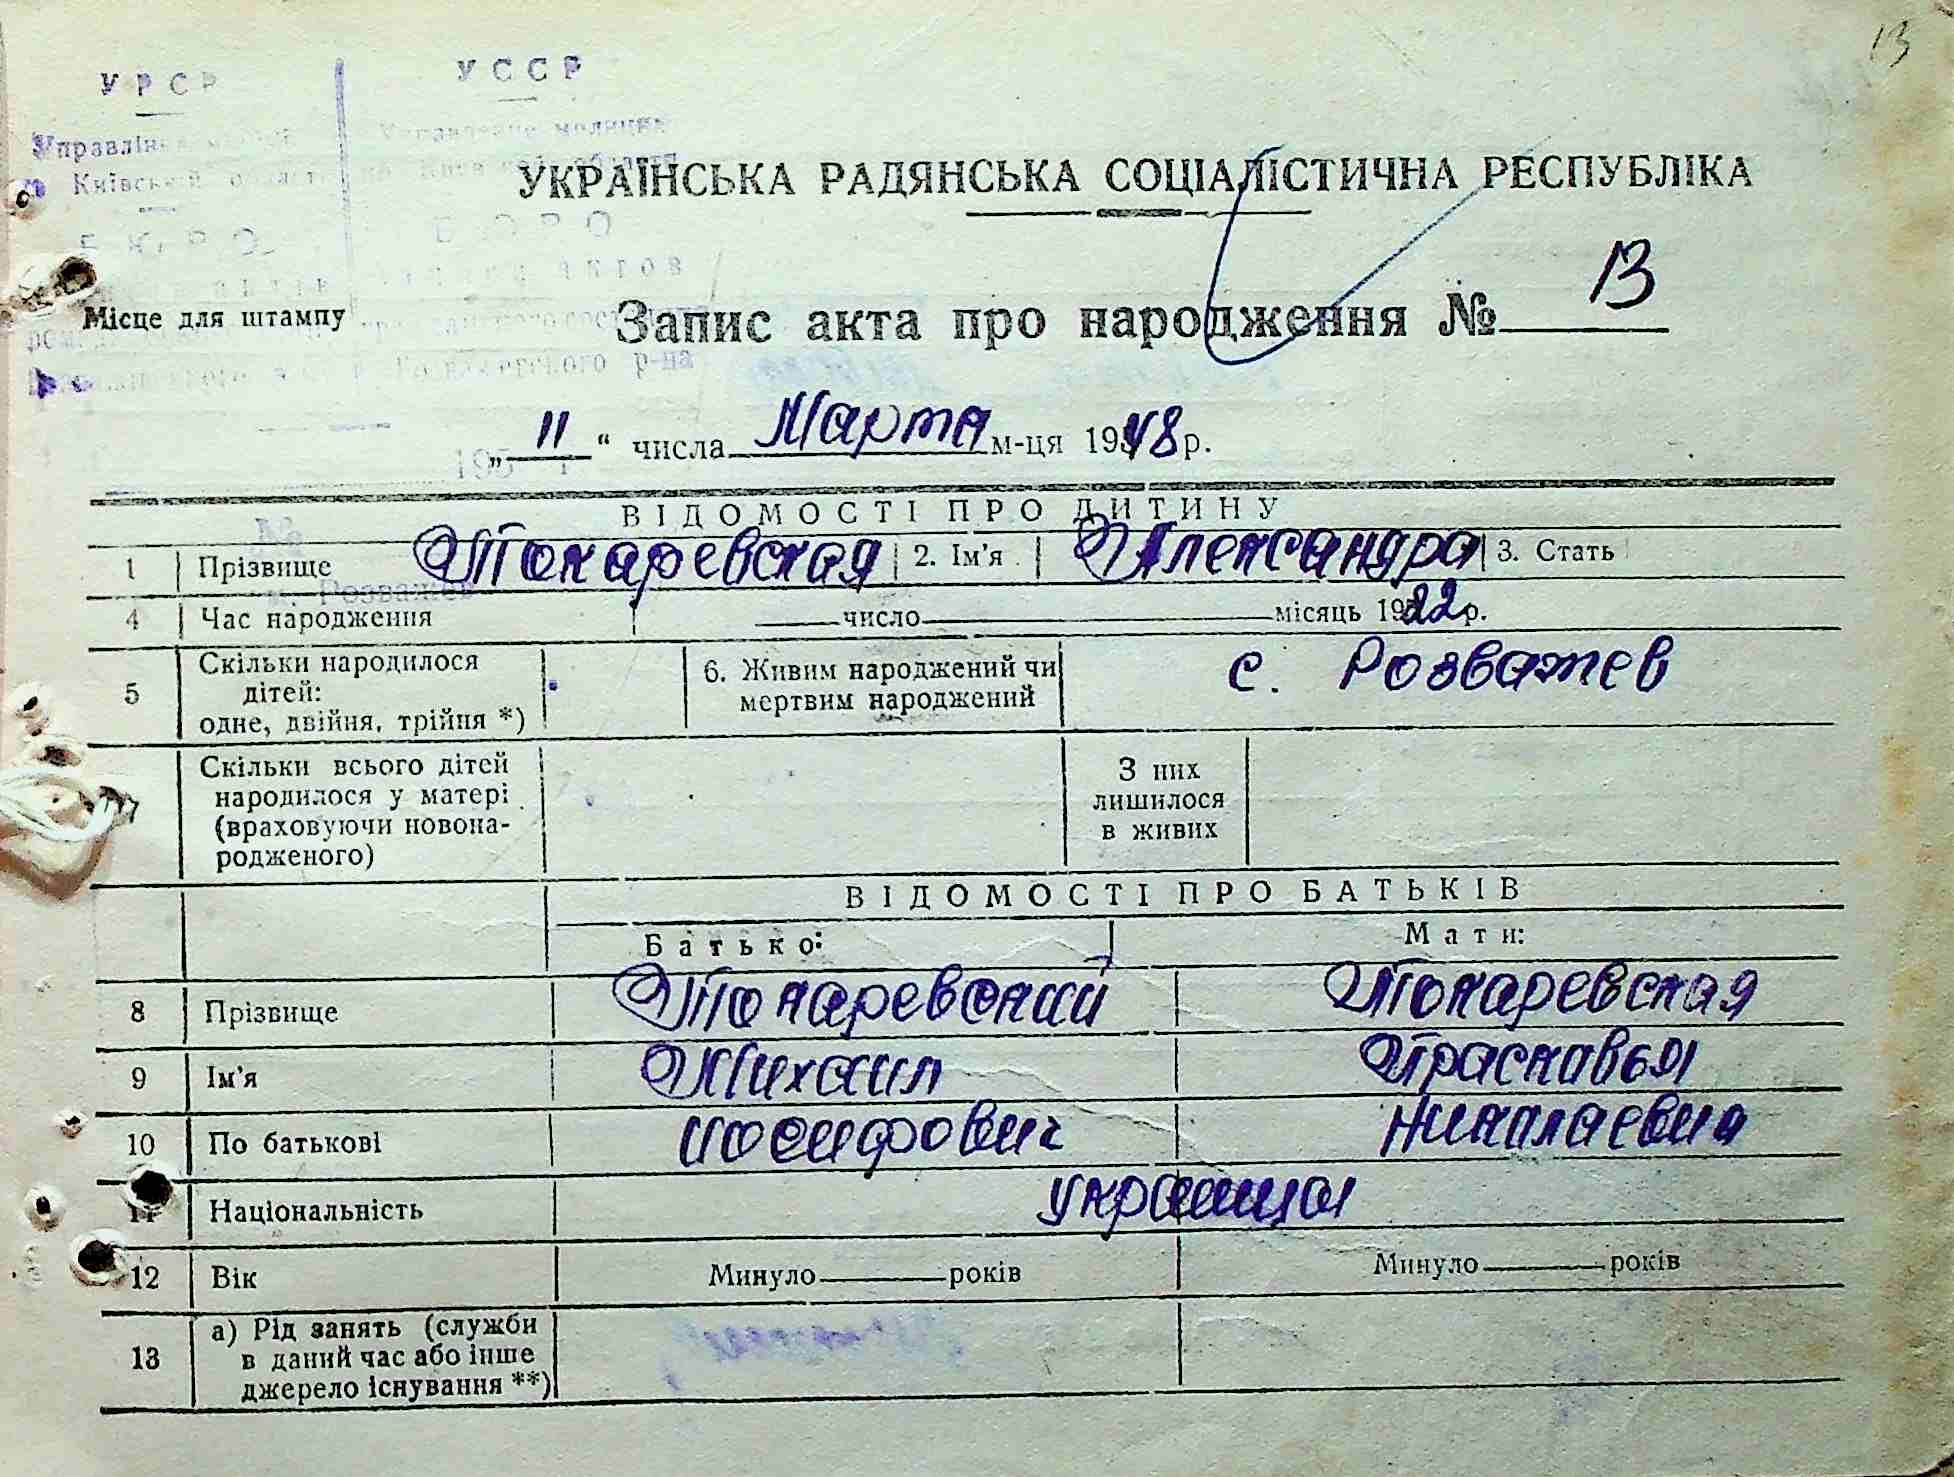 13
У Р С Р
У С С Р
Управління
Киівській області по Киевской области
Б Ю Р О
Б Ю Р О
актов
р-на
УКРАЇНСЬКА РАДЯНСЬКА СОЦІАЛІСТИЧНА РЕСПУБЛІКА
Місце для штампу
Запис акта про народження № 13
„ 11 “ числа Марта м-ця 1948 р.
195
ВІДОМОСТІ ПРО ДИТИНУ
№
1 Прізвище Токаревская 2. Ім'я Александра 3. Стать
Розважев
4 Час народження число місяць 1922 р.
5 Скільки народилося дітей: одне, двійня, трійня *) 6. Живим народжений чи мертвим народжений с. Розважев
7 Скільки всього дітей народилося у матері (враховуючи новона-родженого) З них лишилося в живих
ВІДОМОСТІ ПРО БАТЬКІВ
Батько: Мати:
8 Прізвище Токаревский Токаревская
9 Ім'я Михаил Прасковья
10 По батькові иосифович
11 Національність украинцы
12 Вік Минуло років Минуло років
13 а) Рід занять (служби в даний час або інше джерело існування **)